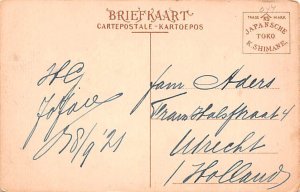 BRIEFKAART
CARTEPOSTALE - KARTOEPOS
TRADE MARK
JAPANSCHE
TOKO
K. SHIMANE.
HG
8/9 '21
fam Aders
Frans Halsstraat 4
Utrecht
/Holland